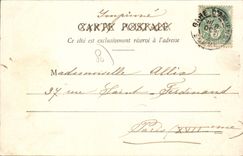 Imprimé
CARTE POSTALE
Ce côté est exclusivement réservé à l'adresse
Mademoiselle Allia
37 rue Saint-Ferdinand
Paris (XVIIème)